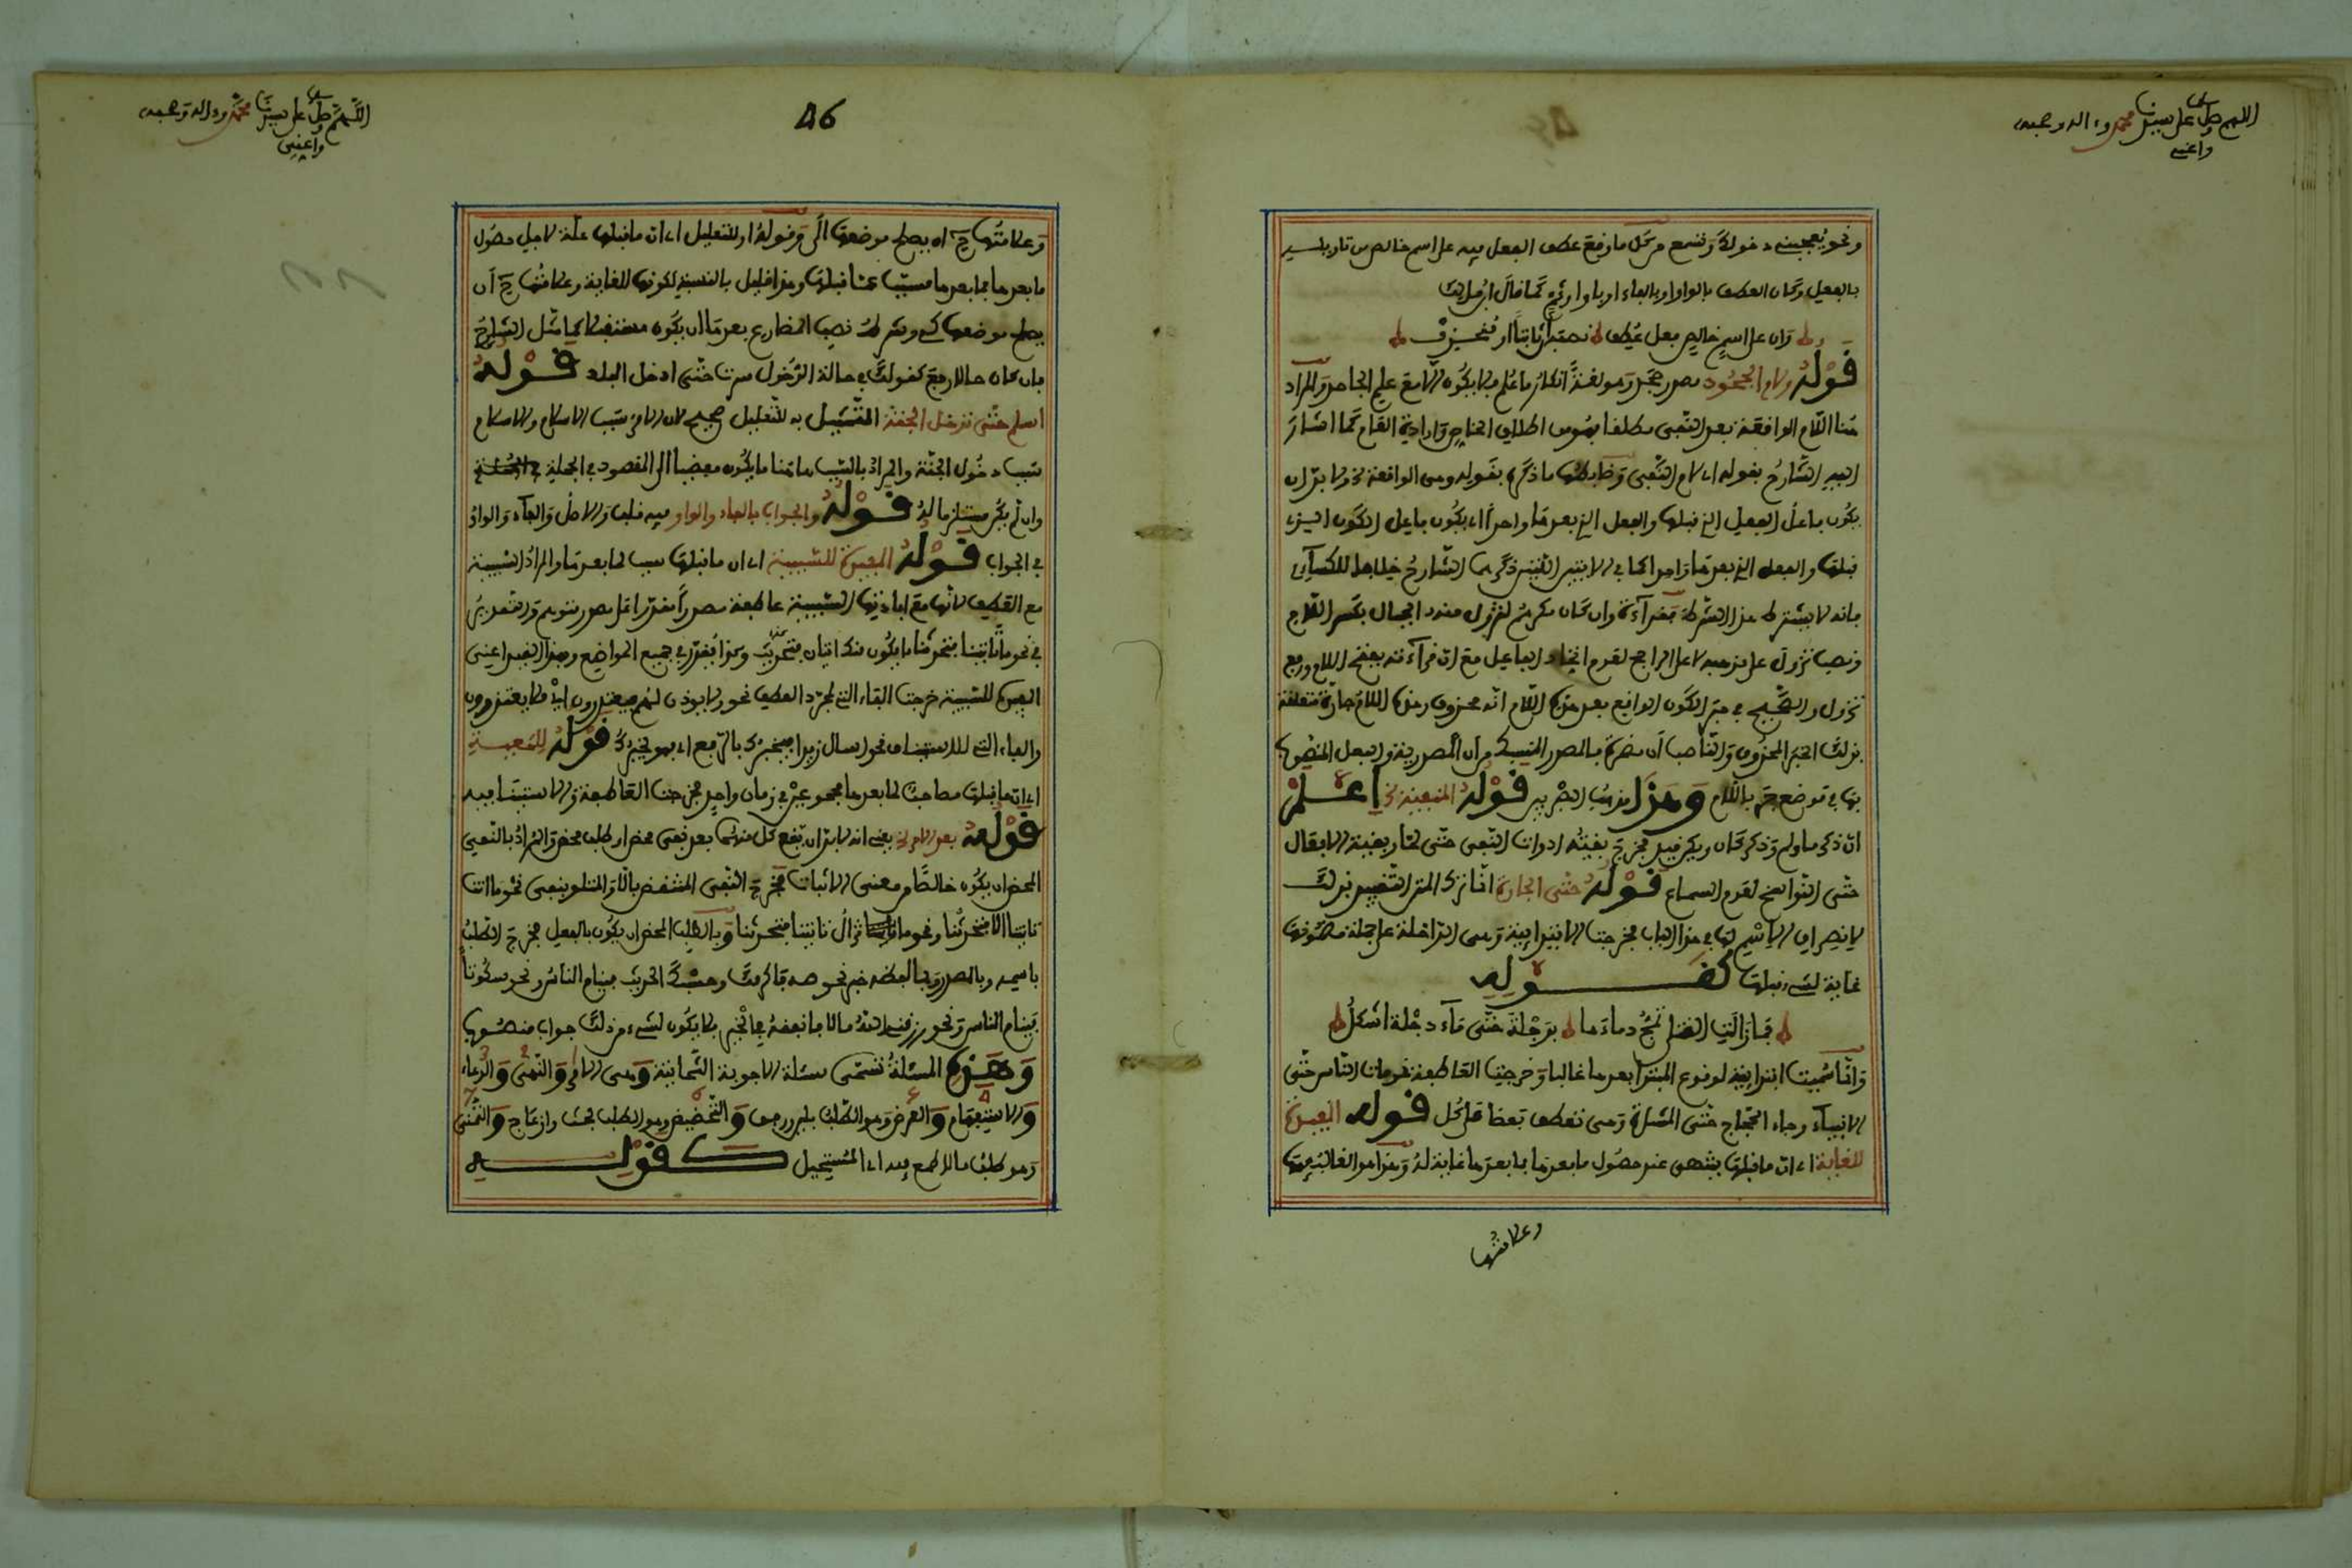 اللهم صل على سيدنا محمد وءاله وصحبه
واغنني
ونحو يعجبني دخولك وتسمع من كل ما وقع عطف الفعل فيه على اسم خالص من تاويله
بالفعل وكان العطف بالواو او بالفاء او باو او بثم كما قال ابن مالك
وان على اسم خالص فعل عطف تنصبه ان ثابتا او منحذف
قوله ولام الجحود مصدر جحد وهو لغة انكار ما علم فلا يكون الا مع علم الجاحد والمراد
هنا اللام الواقعة بعد النفي مطلقا فهو من اطلاق الخاص وارادة العام كما اشار
اليه الشارح بقوله اي لام النفي وضابطها ما ذكره بقوله وهي الواقعة الخ ولا بد ان
يكون فاعل الفعل الذي قبلها والفعل الذي بعدها واحدا اي يكون فاعل الكون الذي
قبلها والفعل الذي بعدها واحدا كما في الايتين اللتين ذكرهما الشارح خلافا للكسائي
فانه لا يشترط هذا الشرط فقراءة وان كان مكرهم لتزول منه الجبال بكسر اللام
ونصب تزول على مذهبه لا على الراجح لعدم اتحاد الفاعل مع ان قراءته بفتح اللام ورفع
تزول والصحيح في خبر الكون الواقع بعد هذه اللام انه محذوف وهذه اللام جارة متعلقة
بذلك الخبر المحذوف والناصب ان مضمرة فالمصدر المنسبك من ان المصدرية والفعل المنصوب
بها في موضع جر باللام وهذا مذهب البصريين قوله المنفية الخ اعلم
ان ذكر ما ولم وذكر كان ويكن فيه مخرج بقية ادوات النفي حتى لما وبقية الافعال
حتى النواسخ لعدم السماع قوله حتى الجارة انما ترك المتن التقييد بذلك
لانصراف الاسم لها في هذا الباب فخرجت الابتدائية وهي الداخلة على جملة مضمونها
غاية لشيء قبلها كقوله
فما زالت القتلى تمج دماءها بدجلة حتى ماء دجلة اشكل
وانما سميت ابتدائية لوقوع المبتدا بعدها غالبا وخرجت العاطفة نحو مات الناس حتى
الانبياء وجاء الحجاج حتى المشاة وهي تعطف بعضا على كل قوله المفيدة
للغاية اي ان ما قبلها ينتهي عند حصول ما بعدها فما بعدها غاية له وهذا هو الغالب فيها
وعلامتها
46
اللهم صل على سيدنا محمد وءاله وصحبه
واغنني
وعلامتها ح ان يصلح موضعها الى وقوله او للتعليل اي ان ما قبلها علة لاجل حصول
ما بعدها فما بعدها مسبب عما قبلها وهذا قليل بالنسبة لكونها للغاية وعلامتها ح ان
يصلح موضعها كي وشرط نصب المضارع بعدها ان يكون مستقبلا كما مثل الشارح
فان كان حالا رفع كقولك في حالة الدخول سرت حتى ادخل البلد قوله
اسلم حتى تدخل الجنة التمثيل به للتعليل صحيح لان الامر سبب الاسلام والاسلام
سبب دخول الجنة والمراد بالسبب هاهنا ما يكون مفضيا الى المقصود في الجملة
وان لم يكن مستلزما له قوله والجواب بالفاء والواو فيه قلب والاصل والفاء والواو
في الجواب قوله المفيدة للسببية اي ان ما قبلها سبب لما بعدها والمراد السببية
مع العطف لانها مع افادتها السببية عاطفة مصدرا مقدرا على مصدر متوهم والتقدير
في نحو ما تاتينا فتحدثنا ما يكون منك اتيان فتحديث وهذا يقدر في جميع المواضع وبهذا القيد اعني
المفيدة للسببية خرجت الفاء التي لمجرد العطف نحو ولا يوذن لهم فيعتذرون اي فلا يعتذرون
والفاء التي للاستيناف نحو اسال زيدا فيخبرك بالرفع اي فهو يخبرك قوله للمعية
اي ان ما قبلها مصاحب لما بعدها مجموعين في زمان واحد فخرجت العاطفة والاستينافية
قوله بعد الامر الخ يعني انه لا بد ان يقع كل منهما بعد نفي محض او طلب محض والمراد بالنفي
المحض ان يكون خالصا من معنى الاثبات فخرج النفي المنتقض بالا والمتلو بنفي نحو ما انت
تاتينا الا فتحدثنا ونحو ما تزال تاتينا فتحدثنا وبالطلب المحض ان يكون بالفعل فخرج الطلب
باسمه وبالمصدر وبما لفظه خبر نحو صه فاكرمك وحسبك الحديث فينام الناس ونحو سكوتا
فينام الناس ونحو رزقني الله مالا فانفقه في الخير فلا يكون لشيء من ذلك جواب منصوب
وهذه المسئلة تسمى مسئلة الاجوبة الثمانية وهي الامر والنهي والدعاء
والاستفهام والعرض وهو الطلب بلين ورفق والتحضيض وهو الطلب بحث وازعاج والتمني
وهو طلب ما لا طمع فيه اي المستحيل كقوله